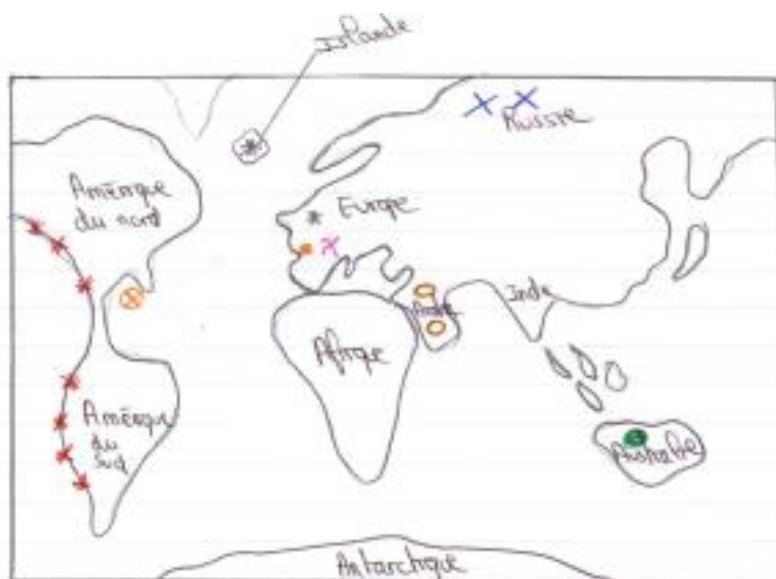 Islande
Russie
Amérique
du nord
Europe
Inde
Arabie
Afrique
Amérique
du
Sud
Australie
Antarctique